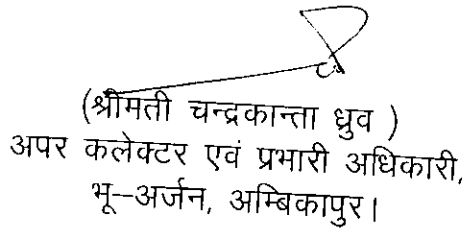 (श्रीमती चन्द्रकान्ता ध्रुव )
अपर कलेक्टर एवं प्रभारी अधिकारी,
भू--अर्जन, अम्बिकापुर।